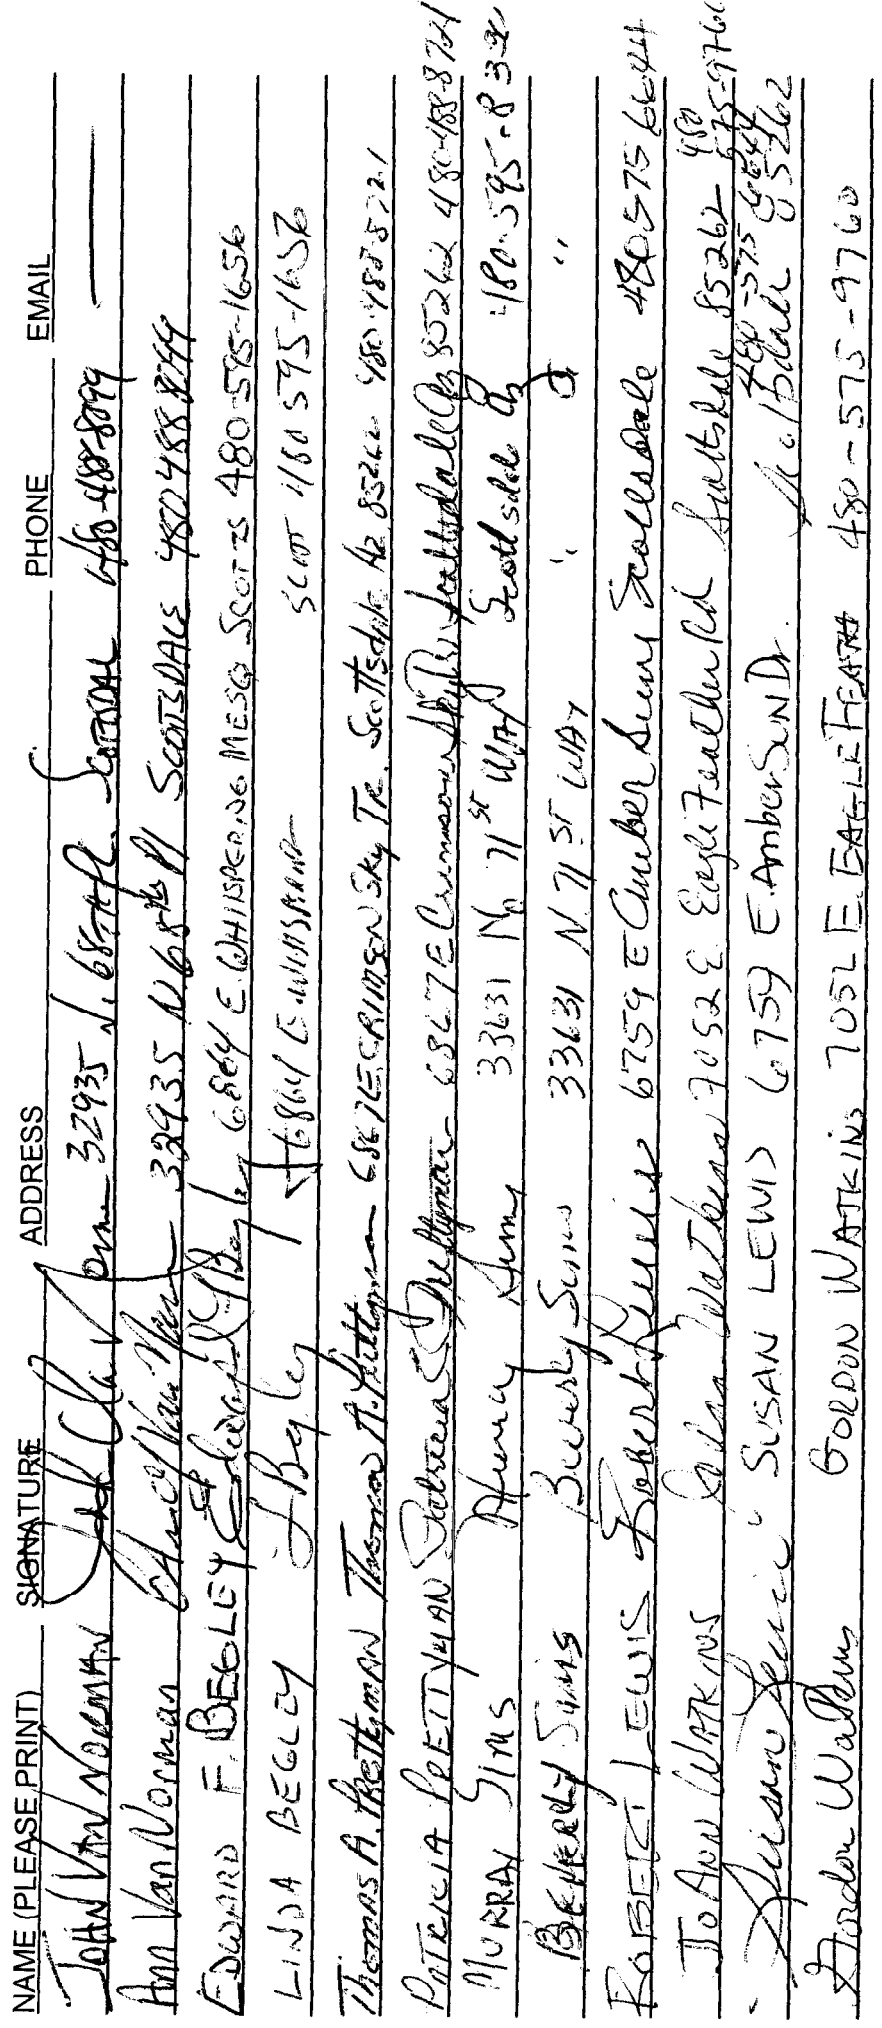 NAME (PLEASE PRINT) SIGNATURE ADDRESS PHONE EMAIL
JOHN VAN NORMAN 32935 N. 68th Pl. 480-488-8099 —
Ann Van Norman Ann Van Norman 32935 N 68th Pl SCOTSDALE 480 488 8099
EDWARD F. BEGLEY Edward F Begley 6864 E. WHISPERING MESQ SCOTTS 480-595-1656
LINDA BEGLEY L Begley 6864 E. WHISPERING SCOT 480 595-1656
Thomas A. Prettyman Thomas A. Prettyman 6867 E CRIMSON Sky Tr. Scottsdale Az 85262 480-488-8721
PATRICIA PRETTYMAN Patricia S Prettyman 6867 E Crimson Sky Tr Scottsdale Az 85262 480-488-8721
MURRAY SIMS Murray Sims 33631 N. 71st WAY Scottsdale Az 480-595-832
BEVERLY SIMS Beverly Sims 33631 N. 71 ST WAY " "
ROBERT LEWIS Robert Lewis 6759 E Amber Sun Scottsdale 480 575 6644
JOANN WATKINS JoAnn Watkins 7052 E. Eagle Feather Rd Scottsdale 85262 480 575-9760
Susan Lewis SUSAN LEWIS 6759 E. Amber Sun Dr. Scottsdale 85262 480-575-6644
Gordon Watkins GORDON WATKINS 7052 E. EAGLE FEATH 480-575-9760